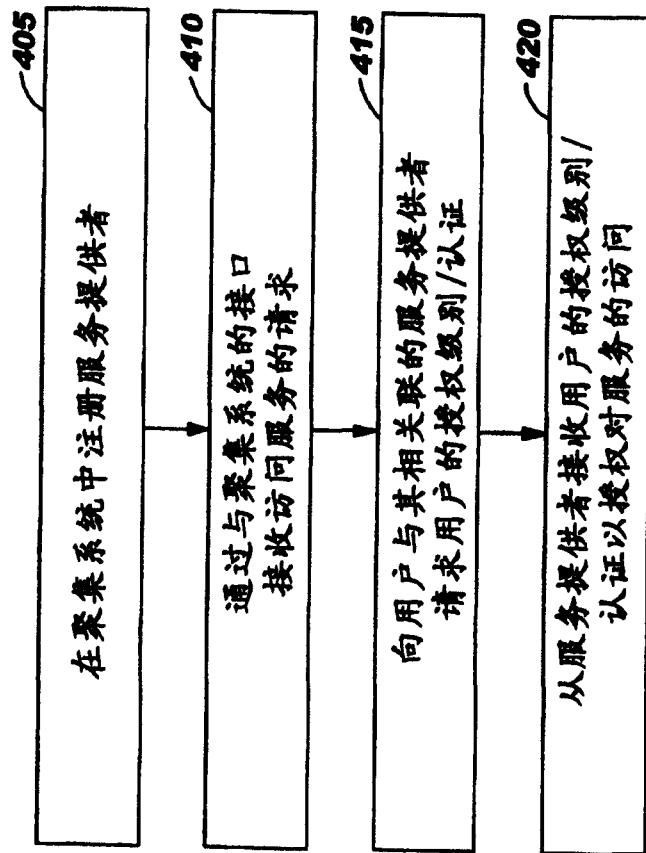 405
在聚集系统中注册服务提供者
410
通过与聚集系统的接口
接收访问服务的请求
415
向用户与其相关联的服务提供者
请求用户的授权级别/认证
420
从服务提供者接收用户的授权级别/
认证以授权对服务的访问